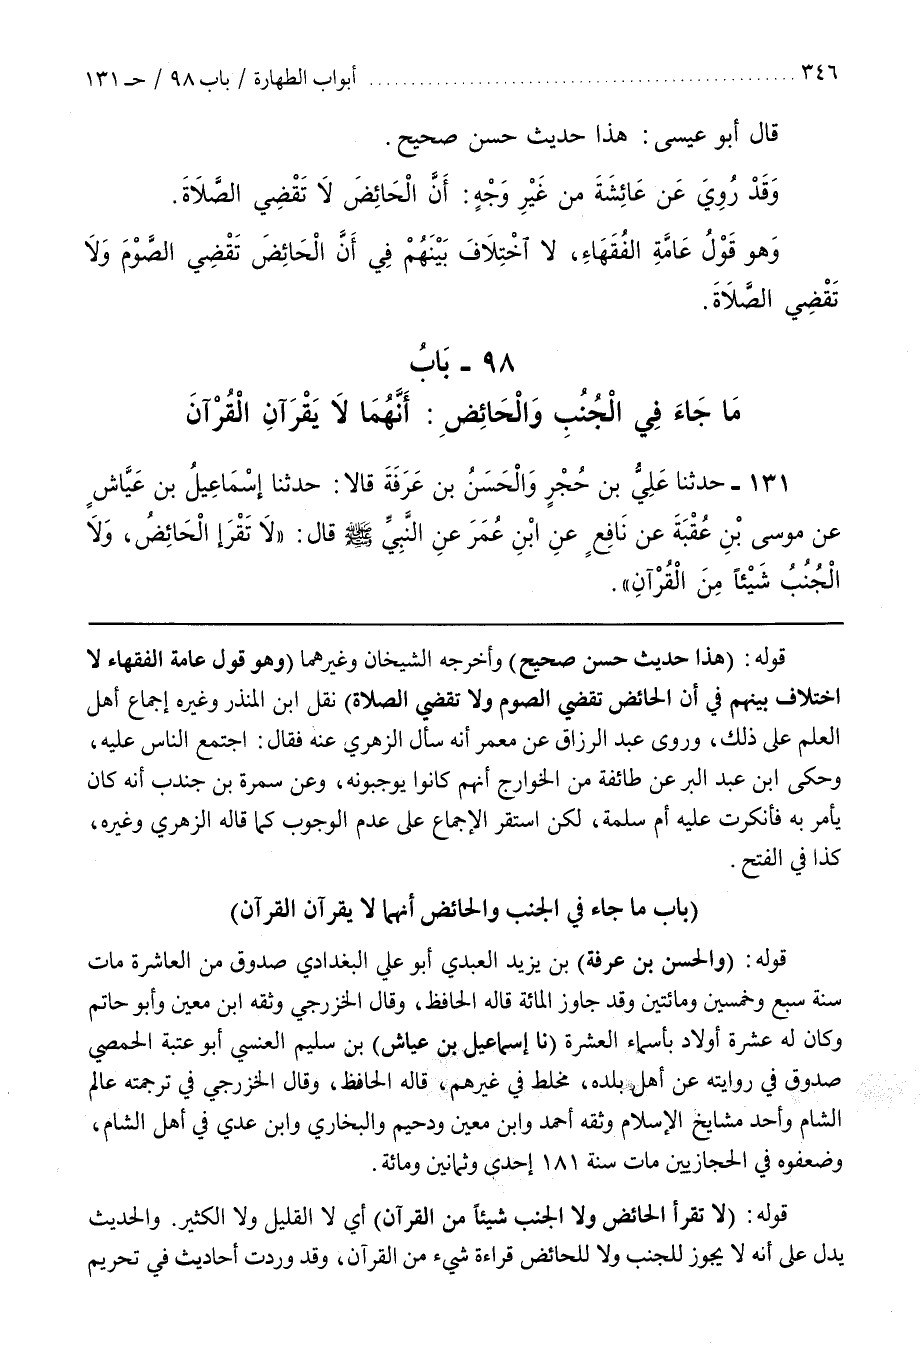 ٣٤٦ ........................................ أبواب الطهارة / باب ٩٨ / حـ ١٣١
قال أبو عيسى: هذا حديث حسن صحيح.
وَقَدْ رُوِيَ عَن عَائِشَةَ من غَيْرِ وَجْهٍ: أَنَّ الْحَائِضَ لَا تَقْضِي الصَّلَاةَ.
وَهو قَوْلُ عَامَّةِ الفُقَهَاءِ، لا ٱخْتِلَافَ بَيْنَهُمْ فِي أَنَّ الْحَائِضَ تَقْضِي الصَّوْمَ وَلَا
تَقْضِي الصَّلَاةَ.
٩٨ ـ بَابُ
مَا جَاءَ فِي الْجُنُبِ وَالْحَائِضِ: أَنَّهُمَا لَا يَقْرَآنِ الْقُرْآنَ
١٣١ ـ حدثنا عَلِيُّ بن حُجْرٍ وَالْحَسَنُ بن عَرَفَةَ قالا: حدثنا إسْمَاعِيلُ بن عَيَّاشٍ
عن موسى بْنِ عُقْبَةَ عن نَافِعٍ عنِ ابْنِ عُمَرَ عنِ النَّبِيِّ ﷺ قال: «لَا تَقْرَإِ الْحَائِضُ، وَلَا
الْجُنُبُ شَيْئاً مِنَ الْقُرْآنِ».
قوله: (هذا حديث حسن صحيح) وأخرجه الشيخان وغيرهما (وهو قول عامة الفقهاء لا
اختلاف بينهم في أن الحائض تقضي الصوم ولا تقضي الصلاة) نقل ابن المنذر وغيره إجماع أهل
العلم على ذلك، وروى عبد الرزاق عن معمر أنه سأل الزهري عنه فقال: اجتمع الناس عليه،
وحكى ابن عبد البر عن طائفة من الخوارج أنهم كانوا يوجبونه، وعن سمرة بن جندب أنه كان
يأمر به فأنكرت عليه أم سلمة، لكن استقر الإجماع على عدم الوجوب كما قاله الزهري وغيره،
كذا في الفتح.
(باب ما جاء في الجنب والحائض أنهما لا يقرآن القرآن)
قوله: (والحسن بن عرفة) بن يزيد العبدي أبو علي البغدادي صدوق من العاشرة مات
سنة سبع وخمسين ومائتين وقد جاوز المائة قاله الحافظ، وقال الخزرجي وثقه ابن معين وأبو حاتم
وكان له عشرة أولاد بأسماء العشرة (نا إسماعيل بن عياش) بن سليم العنسي أبو عتبة الحمصي
صدوق في روايته عن أهل بلده، مخلط في غيرهم، قاله الحافظ، وقال الخزرجي في ترجمته عالم
الشام وأحد مشايخ الإسلام وثقه أحمد وابن معين ودحيم والبخاري وابن عدي في أهل الشام،
وضعفوه في الحجازيين مات سنة ١٨١ إحدى وثمانين ومائة.
قوله: (لا تقرأ الحائض ولا الجنب شيئاً من القرآن) أي لا القليل ولا الكثير. والحديث
يدل على أنه لا يجوز للجنب ولا للحائض قراءة شيء من القرآن، وقد وردت أحاديث في تحريم